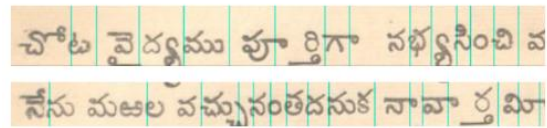 చోట వైద్యము పూర్తిగా నభ్యసించి వ
నేను మఱల వచ్చునంతదనుక నావార్త మీ